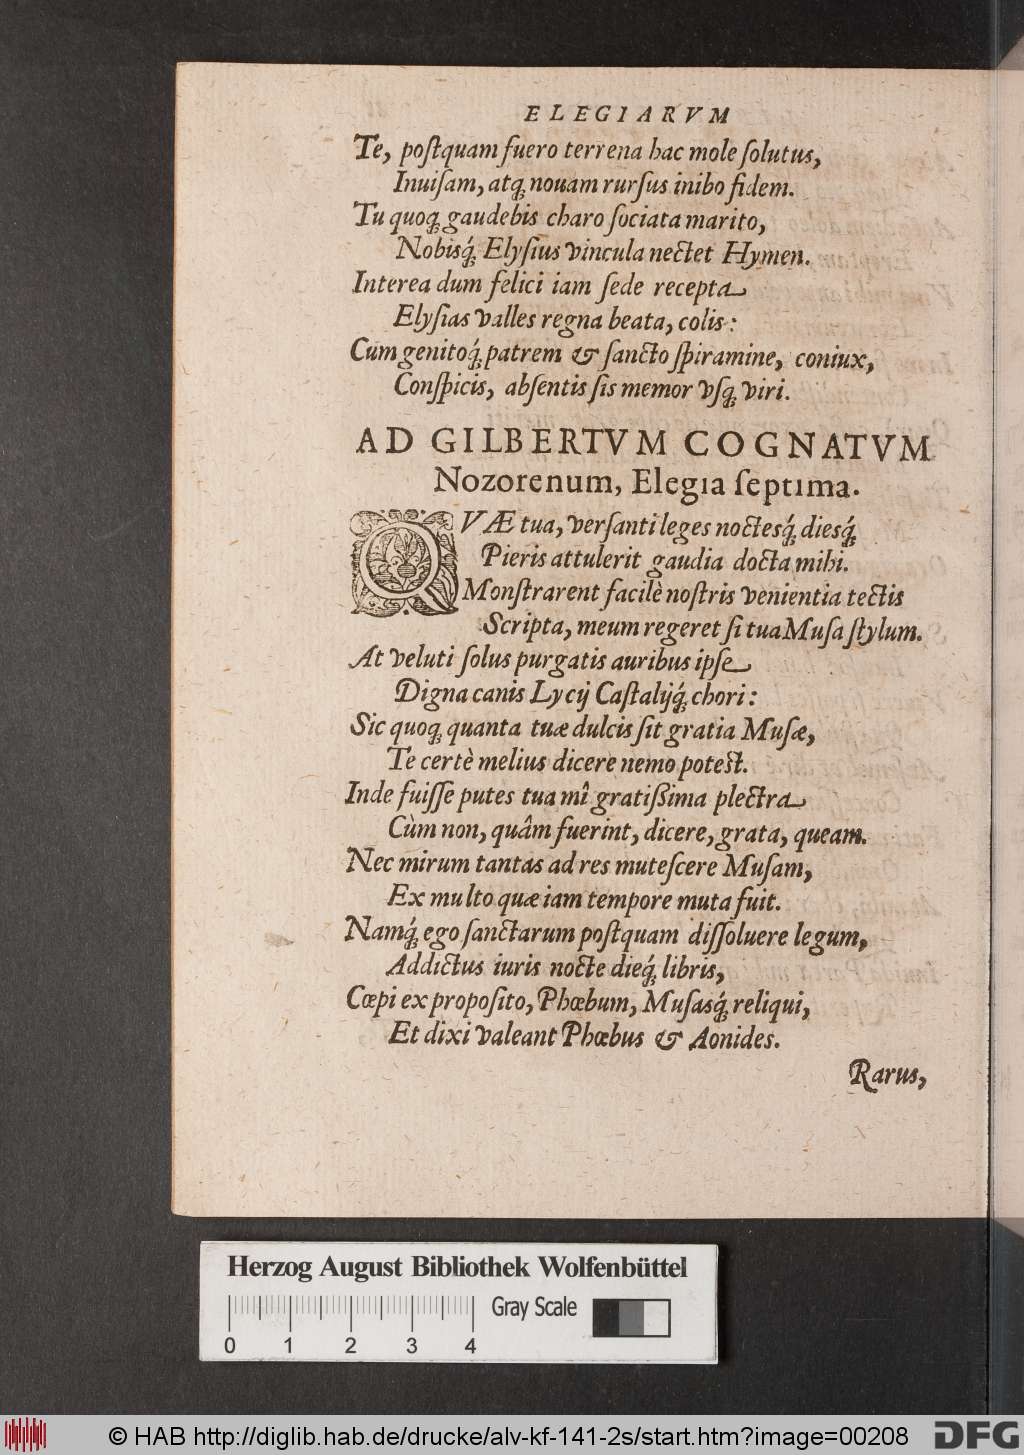 ELEGIARVM
Te, poſtquam fuero terrena hac mole ſolutus,
Inuiſam, atq́; nouam rurſus inibo fidem.
Tu quoq; gaudebis charo ſociata marito,
Nobisq́; Elyſius vincula nectet Hymen.
Interea dum felici iam ſede recepta
Elyſias valles regna beata, colis:
Cum genitoq́; patrem & ſancto ſpiramine, coniux,
Conſpicis, abſentis ſis memor vſq; viri.
AD GILBERTVM COGNATVM
Nozorenum, Elegia ſeptima.
QVÆ tua, verſanti leges noctesq́; diesq́;
Pieris attulerit gaudia docta mihi.
Monſtrarent facilè noſtris venientia tectis
Scripta, meum regeret ſi tua Muſa ſtylum.
At veluti ſolus purgatis auribus ipſe
Digna canis Lycij Caſtalijq́; chori:
Sic quoq; quanta tuæ dulcis ſit gratia Muſæ,
Te certè melius dicere nemo poteſt.
Inde fuiſſe putes tua mî gratißima plectra
Cùm non, quâm fuerint, dicere, grata, queam.
Nec mirum tantas ad res muteſcere Muſam,
Ex multo quæ iam tempore muta fuit.
Namq́; ego ſanctarum poſtquam diſſoluere legum,
Addictus iuris nocte dieq́; libris,
Cœpi ex propoſito, Phœbum, Muſasq́; reliqui,
Et dixi valeant Phœbus & Aonides.
Rarus,
Herzog August Bibliothek Wolfenbüttel
Gray Scale
0 1 2 3 4
© HAB http://diglib.hab.de/drucke/alv-kf-141-2s/start.htm?image=00208
DFG